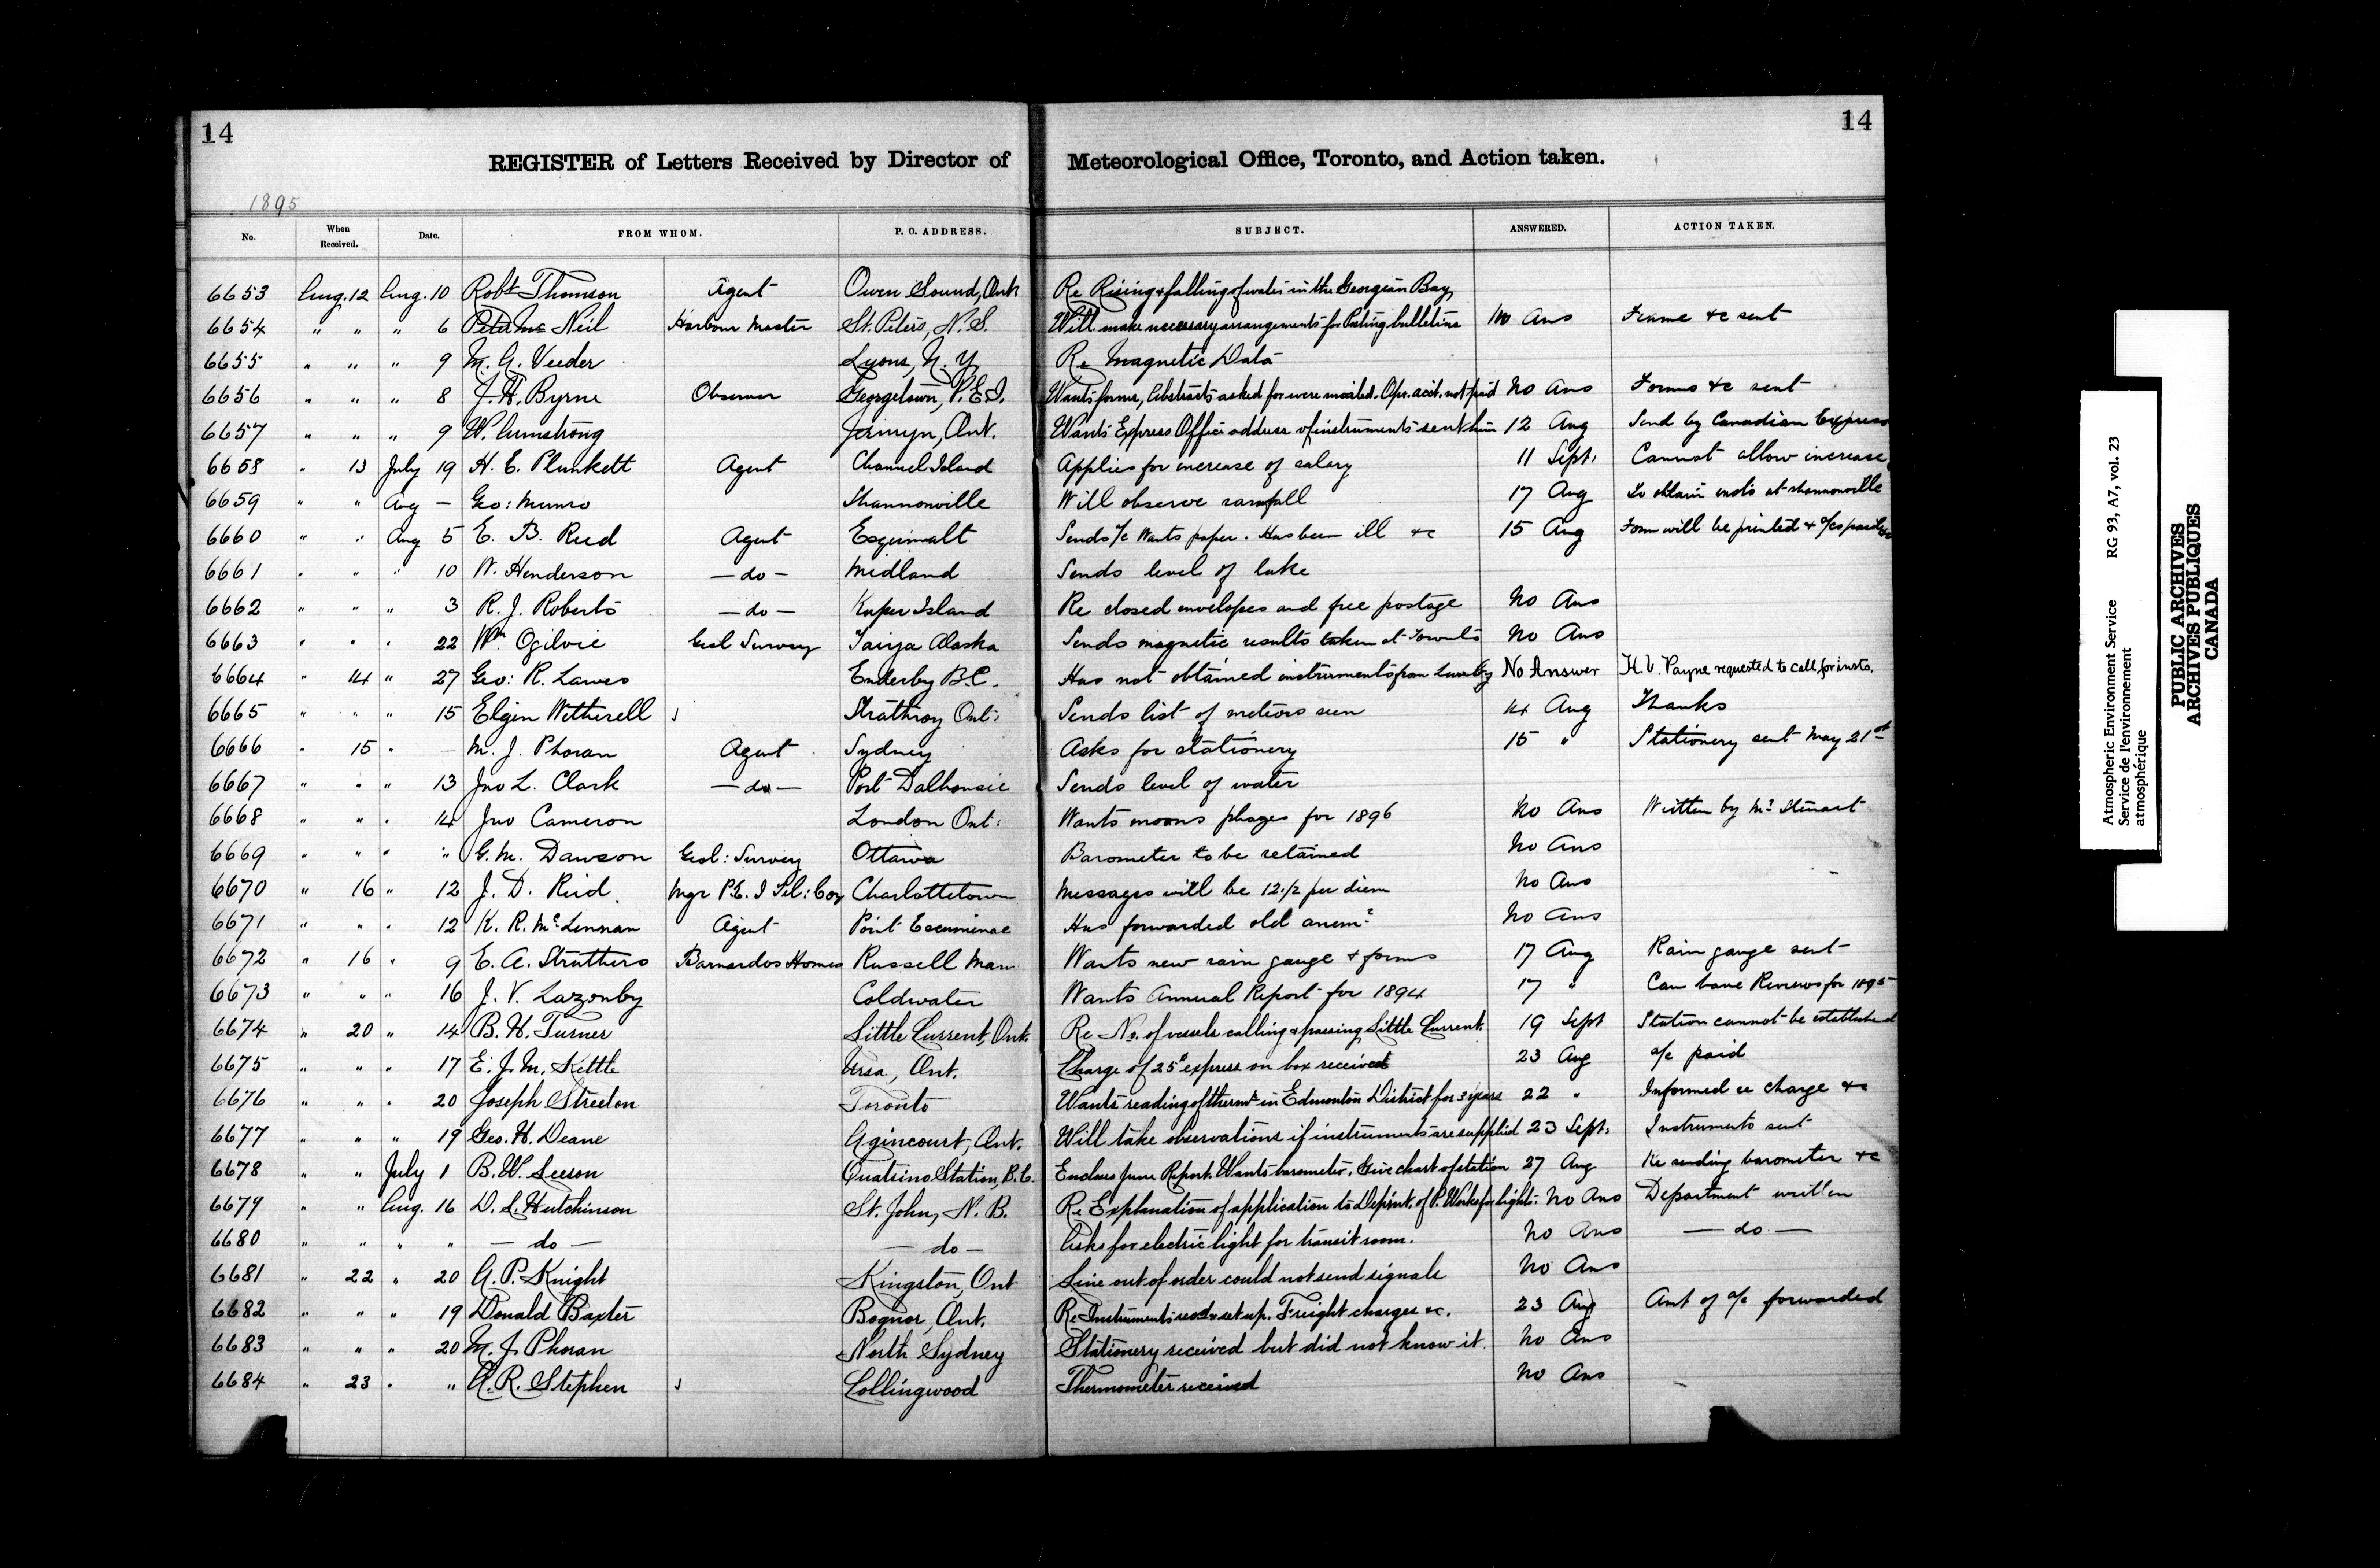 14
14
REGISTER of Letters Received by Director of Meteorological Office, Toronto, and Action taken.
1895
No. When Received. Date. FROM WHOM. P. O. ADDRESS. SUBJECT. ANSWERED. ACTION TAKEN.
6653 Aug. 12 Aug. 10 Robt Thomson Agent Owen Sound, Ont. Re Rising & falling of water in the Georgian Bay
6654 " " " 6 Peter Mc Neil Harbour Master St. Peters, N. S. Will make necessary arrangements for Posting bulletins No Ans Frame &c sent
6655 " " " 9 M. A. Veeder Lyons, N. Y. Re Magnetic Data
6656 " " " 8 J. H. Byrne Observer Georgetown, P. E. I. Wants forms, Abstracts asked for were mailed. Apr. acct. not paid No Ans Forms &c sent
6657 " " " 9 W. Armstrong Jermyn, Ont. Wants Express Office address of instruments sent him 12 Aug Send by Canadian Express
6658 " 13 July 19 H. E. Plunkett Agent Channel Island Applies for increase of salary 11 Sept. Cannot allow increase
6659 " " Aug — Geo: Munro Shannonville Will observe rainfall 17 Aug To obtain insts at Shannonville
6660 " " Aug 5 E. B. Reed Agent Esquimalt Sends a/c Wants paper. Has been ill &c 15 Aug Form will be printed & a/cs
6661 " " " 10 W. Henderson — do — Midland Sends level of lake
6662 " " " 3 R. J. Roberts — do — Kuper Island Re closed envelopes and free postage No Ans
6663 " " " 22 Wm Ogilvie Geol Survey Taiya Alaska Sends magnetic results taken at Toronto No Ans
6664 " 14 " 27 Geo: R. Lawes Enderby B.C. Has not obtained instruments from No Answer H. V. Payne requested to call for insts.
6665 " " " 15 Elgin Wetherell Strathroy Ont: Sends list of meteors seen 14 Aug Thanks
6666 " 15 " — M. J. Phoran Agent Sydney Asks for stationery 15 " Stationery sent May 21st
6667 " " " 13 Jno L. Clark — do — Port Dalhousie Sends level of water
6668 " " " 14 Jno Cameron London Ont: Wants moons phases for 1896 No Ans Written by Mr Stewart
6669 " " " " G. M. Dawson Geol: Survey Ottawa Barometer to be retained No Ans
6670 " 16 " 12 J. D. Reid. Mgr P.E. I Tel: Coy Charlottetown Messages will be 12 1/2 per diem No Ans
6671 " " " 12 K. R. McLennan Agent Point Escuminac Has forwarded old anemr No Ans
6672 " 16 " 9 E. A. Struthers Barnardos Homes Russell Man Wants new rain gauge & forms 17 Aug Rain gauge sent
6673 " " " 16 J. V. Lazonby Coldwater Wants Annual Report for 1894 17 " Can have Reviews for 1895
6674 " 20 " 14 B. H. Turner Little Current, Ont. Re No. of vessels calling & passing Little Current. 19 Sept Station cannot be established
6675 " " " 17 E. J. M. Kettle Ursa, Ont. Charge of 25c express on box received 23 Aug a/c paid
6676 " " " 20 Joseph Streeton Toronto Wants reading of thermr in Edmonton District for 3 years 22 " Informed re charge &c
6677 " " " 19 Geo. H. Deane Agincourt, Ont. Will take observations if instruments are supplied 23 Sept. Instruments sent
6678 " " July 1 B. W. Leeson Quatsino Station, B. C. Encloses June Report. Wants barometer. Give chart of station 27 Aug Re sending barometer &c
6679 " " Aug. 16 D. L. Hutchinson St. John, N. B. Re Explanation of application to Deprnt. of P. Works for light. No Ans Department written
6680 " " " " — do — — do — Asks for electric light for transit room. No Ans — do —
6681 " 22 " 20 A. P. Knight Kingston, Ont Line out of order could not send signals No Ans
6682 " " " 19 Donald Baxter Bognor, Ont. Re Instruments recd & set up. Freight charges &c. 23 Aug Amt of a/c forwarded
6683 " " " 20 M. J. Phoran North Sydney Stationery received but did not know it. No Ans
6684 " 23 " " A. R. Stephen Collingwood Thermometer received No Ans
Atmospheric Environment Service RG 93, A7, vol. 23
Service de l'environnement
atmosphérique
PUBLIC ARCHIVES
ARCHIVES PUBLIQUES
CANADA